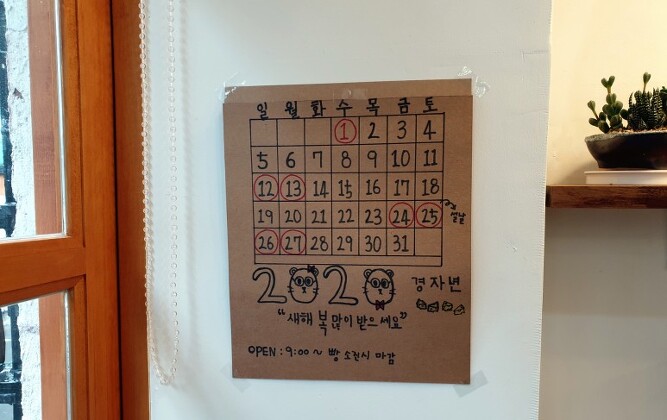 일 월 화 수 목 금 토
1 2 3 4
5 6 7 8 9 10 11
12 13 14 15 16 17 18
19 20 21 22 23 24 25 설날
26 27 28 29 30 31
2020 경자년
"새해 복 많이 받으세요"
OPEN : 9:00 ~ 빵 소진시 마감